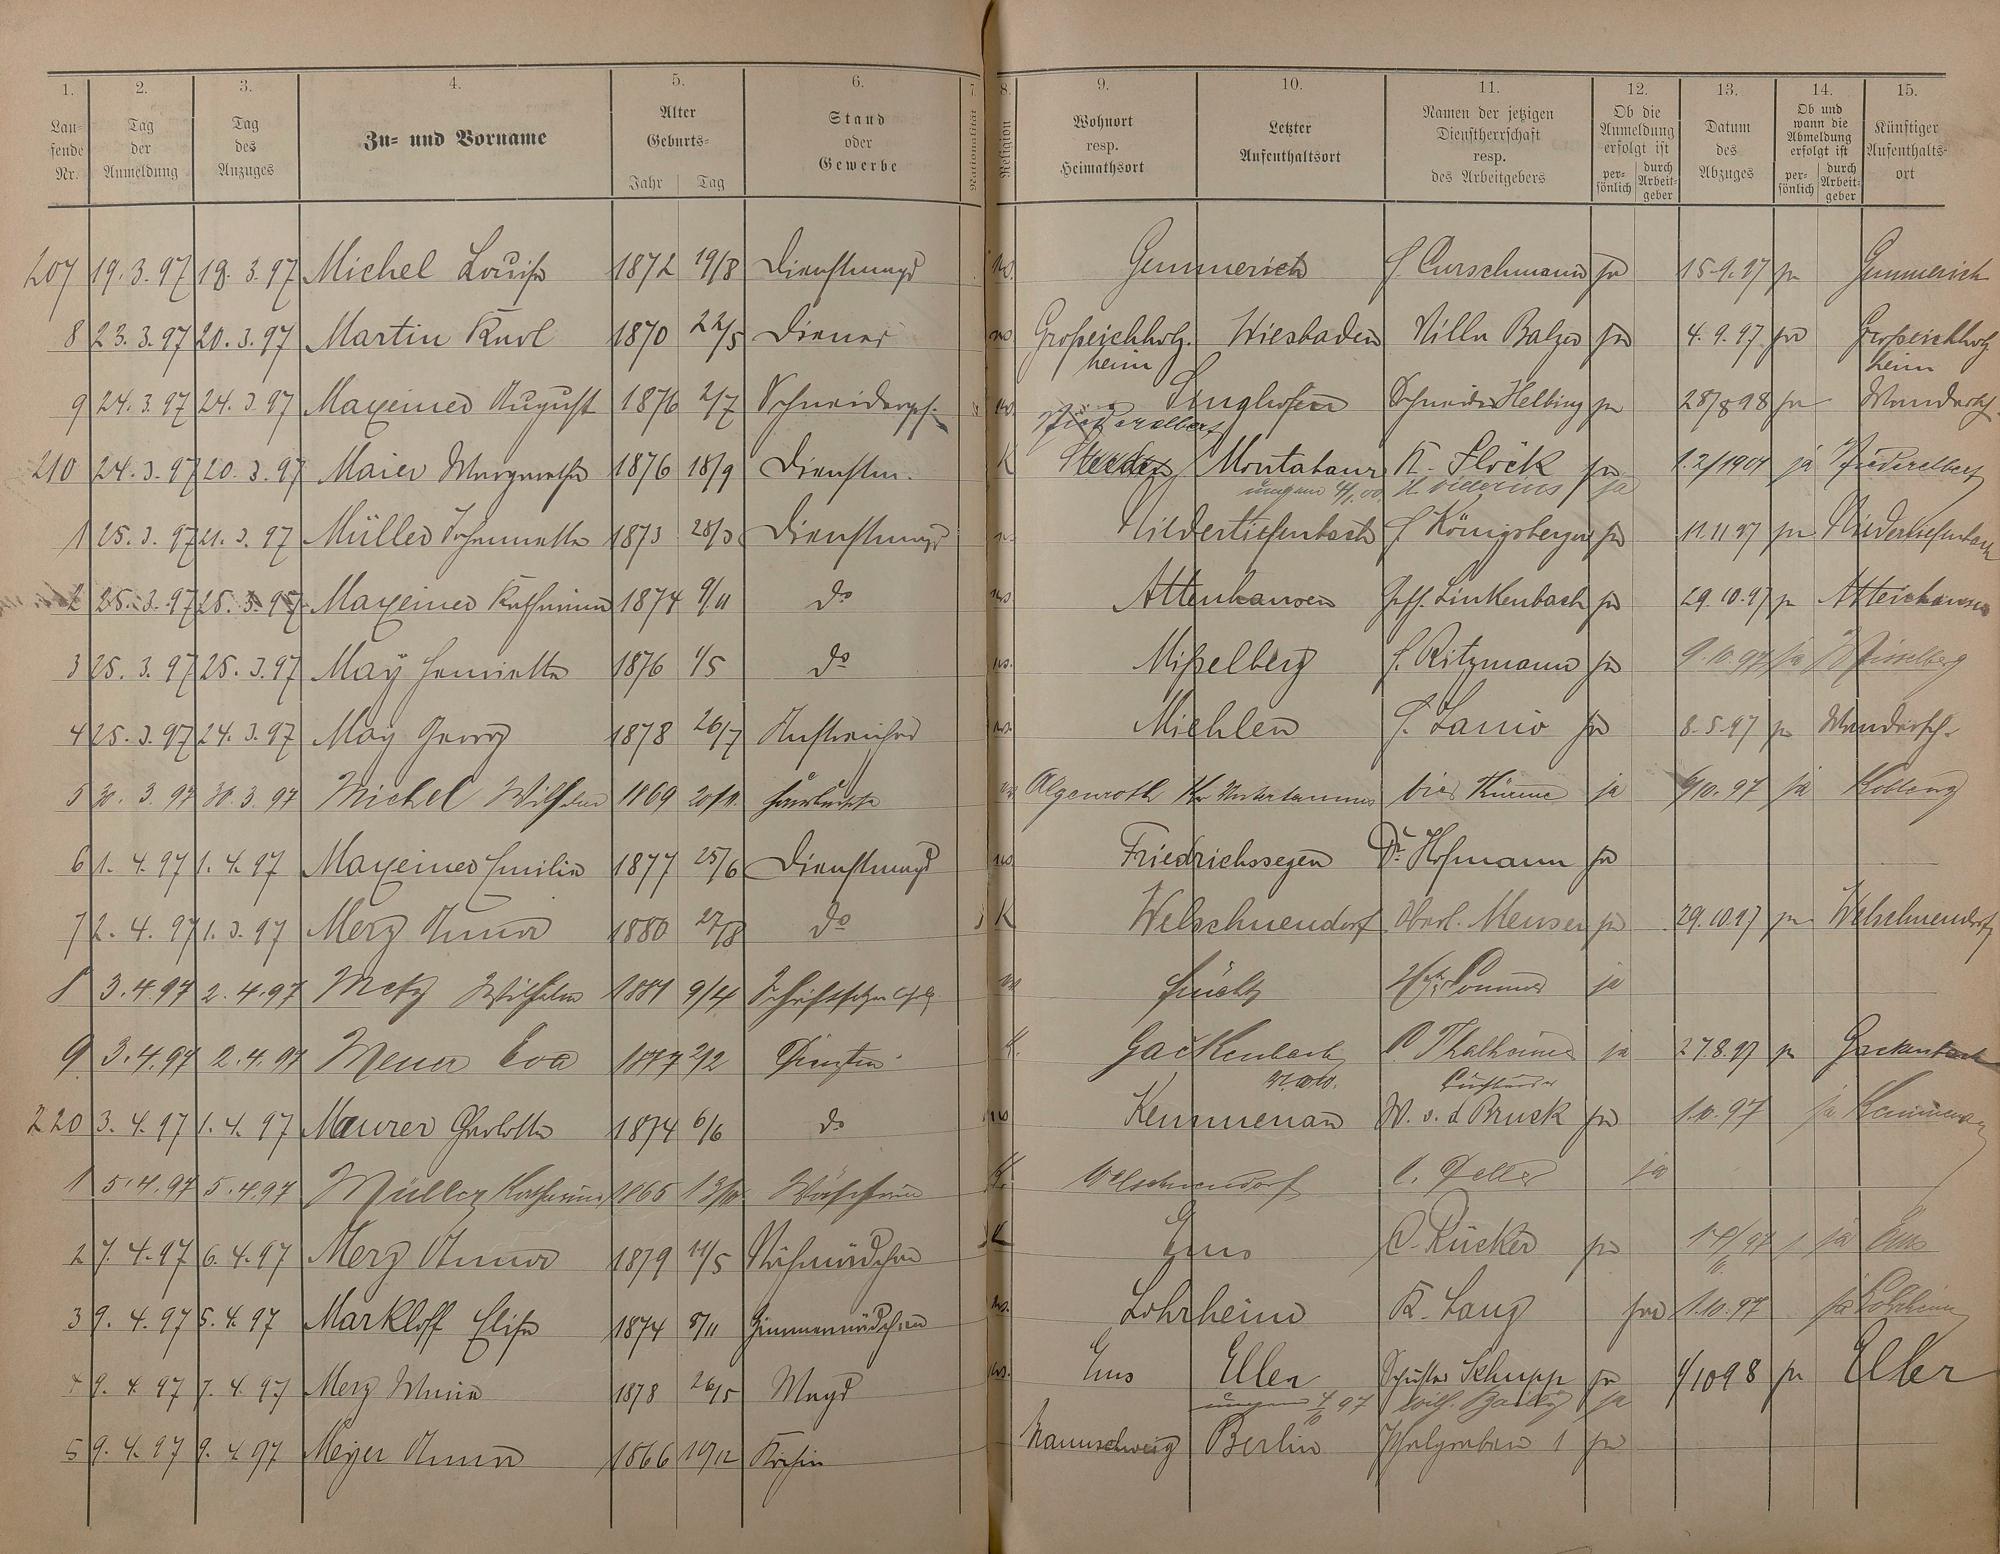 1. 2. 3. 4. 5. 6. 7. 8. 9. 10. 11. 12. 13. 14. 15.
Lau-fende Nr. Tag der Anmeldung Tag des Anzuges Zu- und Vorname Alter Geburts- Jahr Tag Stand oder Gewerbe Nationalität Religion Wohnort resp. Heimathsort Letzter Aufenthaltsort Namen der jetzigen Dienstherrschaft resp. des Arbeitgebers Ob die Anmeldung erfolgt ist per-sönlich durch Arbeit-geber Datum des Abzuges Ob und wann die Abmeldung erfolgt ist per-sönlich durch Arbeit-geber Künftiger Aufenthalts-ort
207 19. 3. 97 19. 3. 97 Michel Louise 1872 19/8 Dienstmagd Gemmerich H. Curschmann ja 15.9.97 ja Gemmerich
8 23. 3. 97 20. 3. 97 Martin Karl 1870 22/5 Diener Großeichholz- Wiesbaden Villa Balzer ja 4. 9. 97 ja Großeichholz
heim heim
9 24. 3. 97 24. 3. 97 Maxeiner August 1876 2/7 Schneiderges. Singhofen Schneider Helbing ja 28/8 98 ja Wandersch.
Niederelbert
210 24. 3. 97 20. 3. 97 Maier Margaretha 1876 18/9 Dienstm. K Montabaur K. Flöck ja 1.2/1901 ja Niederelbert
ja
1 25. 3. 97 21. 3. 97 Müller Johannette 1873 28/3 Dienstmagd Niedertiefenbach H. Königsberger ja 11. 11 97 ja Niedertiefenbach
2 25. 3. 97 25. 3. 97 Maxeiner Katharina 1874 9/11 do Attenhausen Gesch. Linkenbach ja 29. 10. 97 ja Attenhausen
3 25. 3. 97 25. 3. 97 May Henriette 1876 1/5 do Mißelberg H. Ritzmann ja 9. 10. 97 ja Misselberg
4 25. 3. 97 24. 3. 97 May Georg 1878 26/7 Anstreicher Miehlen H. Lanio ja 8. 5. 97 ja Wandersch.
5 30. 3. 97 30. 3. 97 Michel Wilhelm 1869 20/11 Hausbursche Algenroth Kr. Untertaunus ja 6/10. 97 ja Koblenz
6 1. 4. 97 1. 4. 97 Maxeiner Emilie 1877 25/6 Dienstmagd Friedrichssegen Dr. Hofmann ja
7 2. 4. 97 1. 3. 97 Merz Anna 1880 27/8 do K Welschneudorf Oberl. Menser ja 29. 10. 97 ja Welschneudorf
8 3. 4. 97 2. 4. 97 Metz Wilhelm 1881 9/4 Schriftsetzer Fücht Sommer ja
9 3. 4. 97 2. 4. 97 Meuer Eva 1877 2/2 Dienstm. K. Gackenbach Thalheimer ja 27.8.97 ja Gackenbach
220 3. 4. 97 1. 4. 97 Maurer Charlotte 1874 6/6 do Kemmenau W. v. d. Bruck ja 1.10. 97 ja Kemmenau
1 5. 4. 97 5. 4. 97 Müller Katharina 1865 13/10 Wäscherin K. Welschneudorf ja
2 7. 4. 97 6. 4. 97 Merz Anna 1879 11/5 Nähmädchen K Ems C. Rücker ja ja Ems
3 9. 4. 97 5. 4. 97 Markloff Elise 1874 8/11 Zimmermädchen Lohrheim K. Lang ja 1.10. 97 ja Lohrheim
4 9. 4. 97 7. 4. 97 Merz Maria 1878 26/5 Magd Ems Eller Schuster Schupp ja 1/10 98 ja Eller
ja
5 9. 4. 97 9. 4. 97 Meyer Anna 1866 10/12 Köchin Braunschweig Berlin Pfahlgraben 1 ja